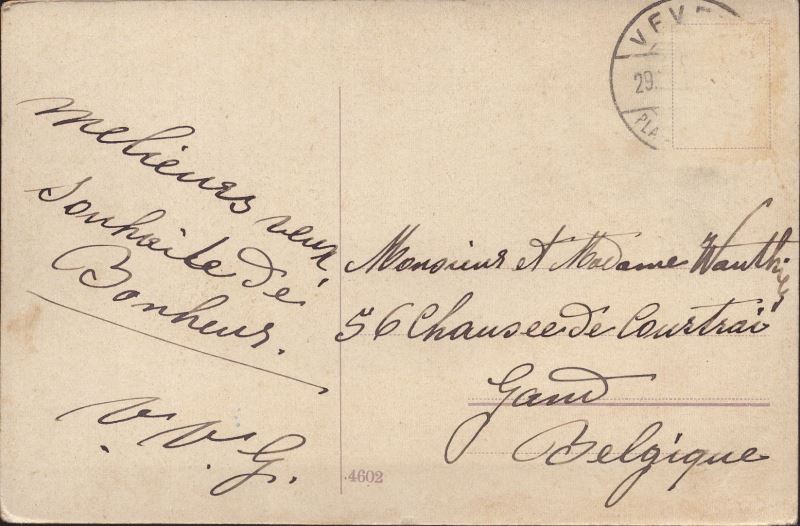 melieurs veux
souhaite de
Bonheur.
V. V. G.
VEVE
29.
PLA
Monsieur et Madame
56 Chausee de Courtrai
Gand
Belgique
4602